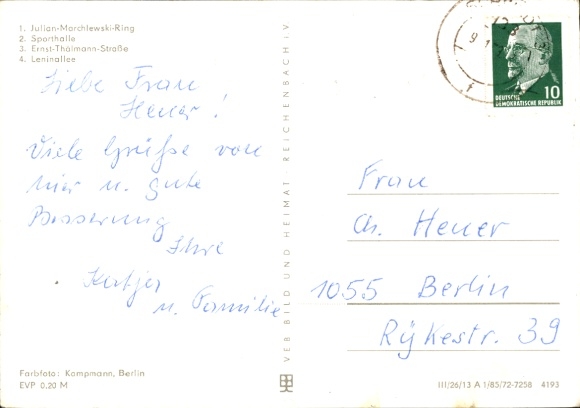 1. Julian-Marchlewski-Ring
2. Sporthalle
3. Ernst-Thälmann-Straße
4. Leninallee
Liebe Frau
Heuer!
Viele Grüße von
hier u. gute
Besserung
Ihre
Katja
u. Familie
Farbfoto: Kampmann, Berlin
EVP 0,20 M
VEB BILD UND HEIMAT · REICHENBACH i.V
DEUTSCHE
DEMOKRATISCHE REPUBLIK
10
Frau
Ch. Heuer
1055 Berlin
Rykestr. 39
III/26/13 A 1/85/72-7258 4193